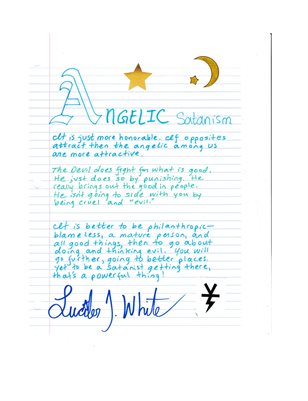 ANGELIC Satanism
It is just more honorable. If opposites
attract then the angelic among us
are more attractive.
The Devil does fight for what is good.
He just does so by punishing. He
really brings out the good in people.
He isn't going to side with you by
being cruel and "evil."
It is better to be philanthropic-
blameless, a mature person, and
all good things, then to go about
doing and thinking evil. You will
go further, going to better places.
Yet to be a Satanist getting there,
that's a powerful thing!
J. White